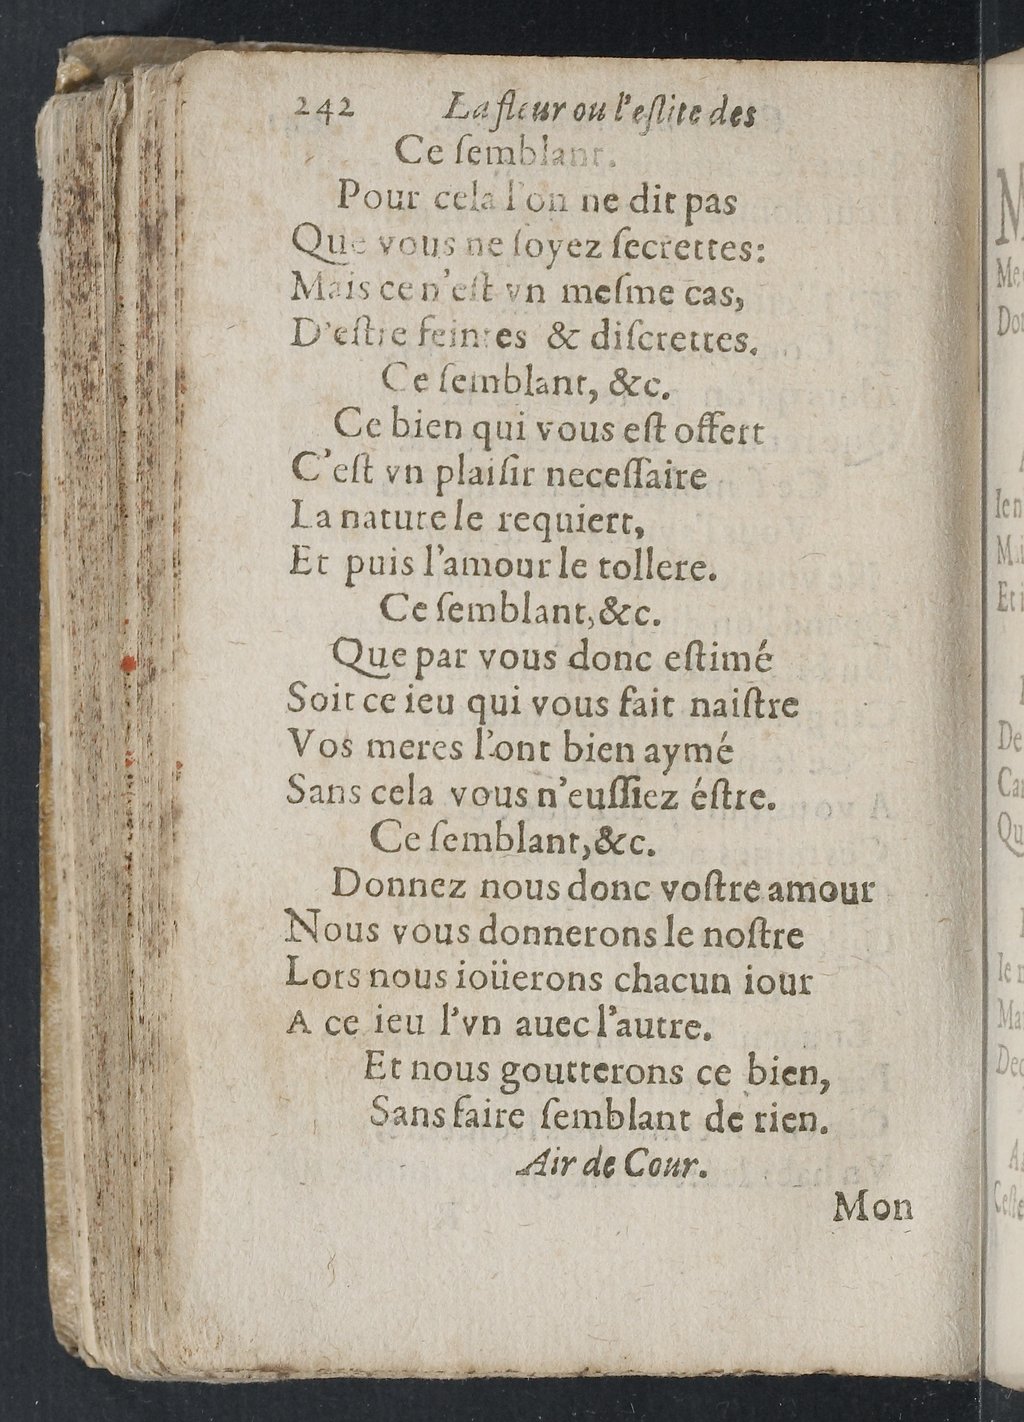 242 La fleur ou l'eſlite des
Ce ſemblant.
Pour cela l'on ne dit pas
Que vous ne ſoyez ſecrettes:
Mais ce n'eſt vn meſme cas,
D'eſtre feintes & diſcrettes.
Ce ſemblant, &c.
Ce bien qui vous eſt offert
C'eſt vn plaiſir neceſſaire
La nature le requiert,
Et puis l'amour le tollere.
Ce ſemblant, &c.
Que par vous donc eſtimé
Soit ce ieu qui vous fait naiſtre
Vos meres l'ont bien aymé
Sans cela vous n'euſſiez éſtre.
Ce ſemblant, &c.
Donnez nous donc voſtre amour
Nous vous donnerons le noſtre
Lors nous ioüerons chacun iour
A ce ieu l'vn auec l'autre.
Et nous goutterons ce bien,
Sans faire ſemblant de rien.
Air de Cour.
Mon